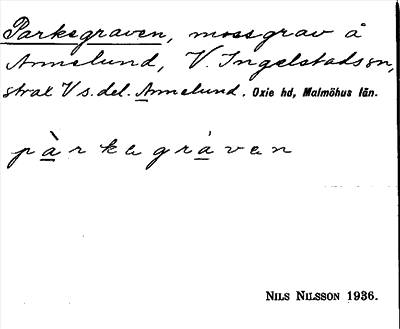 Parksgraven, mossgrav å
Annelund, V. Ingelstads sn,
strax V s. del. Annelund. Oxie hd, Malmöhus län.
pàrksgràven
NILS NILSSON 1936.